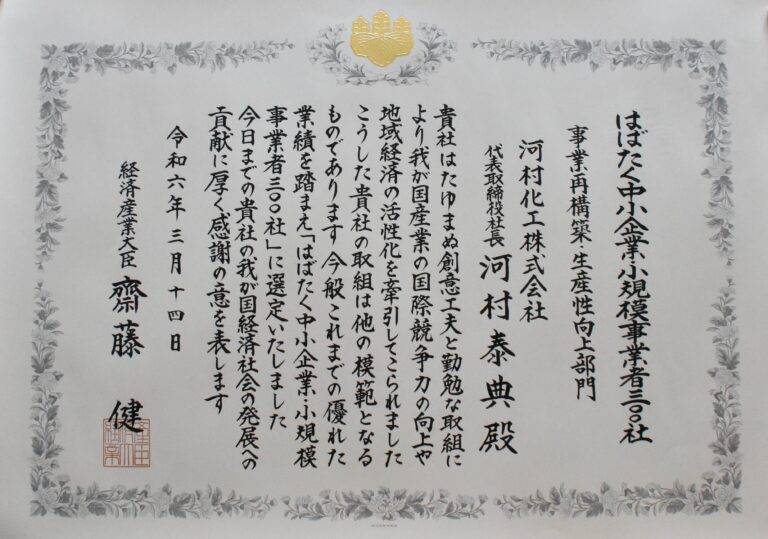 はばたく中小企業・小規模事業者三〇〇社
事業再構築・生産性向上部門
河村化工株式会社
代表取締役社長 河村泰典殿
貴社はたゆまぬ創意工夫と勤勉な取組に
より我が国産業の国際競争力の向上や
地域経済の活性化を牽引してこられました
こうした貴社の取組は他の模範となる
ものであります 今般これまでの優れた
業績を踏まえ「はばたく中小企業・小規模
事業者三〇〇社」に選定いたしました
今日までの貴社の我が国経済社会の発展への
貢献に厚く感謝の意を表します
令和六年三月十四日
経済産業大臣 齋藤 健